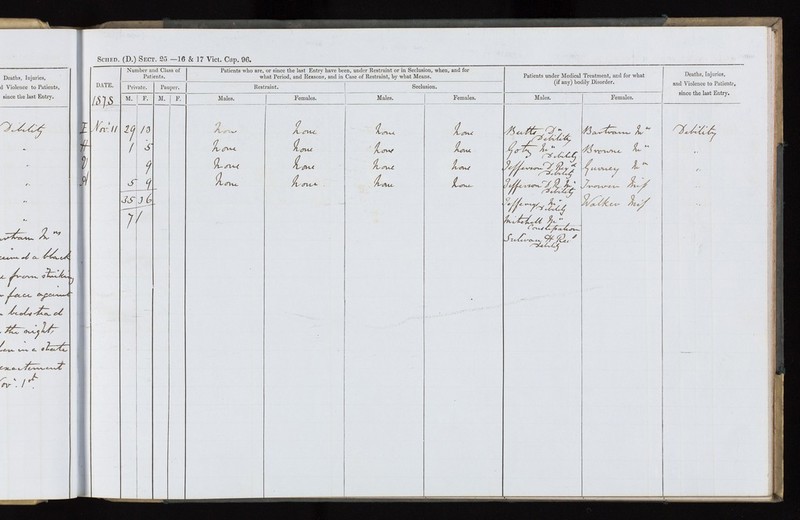 Deaths, Injuries,
d Violence to Patients,
since the last Entry.
Debility
"
"
"
"
"
a black
from striking
face against
bedstead
the night,
in a state
Nov. 1st.
SCHED. (D.) SECT. 25 —16 & 17 Vict. Cap. 96.
DATE.
1878
Number and Class of Patients.
Private. Pauper.
M. F. M. F.
Patients who are, or since the last Entry have been, under Restraint or in Seclusion, when, and for
what Period, and Reasons, and in Case of Restraint, by what Means.
Restraint. Seclusion.
Males. Females. Males. Females.
Patients under Medical Treatment, and for what
(if any) bodily Disorder.
Males. Females.
Deaths, Injuries,
and Violence to Patients,
since the last Entry.
I Nov. 11 29 10 None None None None Butts Dr Debility Bartram Mrs Debility
H 1 5 None None None None Debility Browne Mrs "
V 9 None None None None Jefferson Debility Gurney Mrs "
A 5 9 None None None None Jefferson Debility Miss "
35 36 Debility Walker Miss "
71
Mitchell Mr
Constipation
Debility